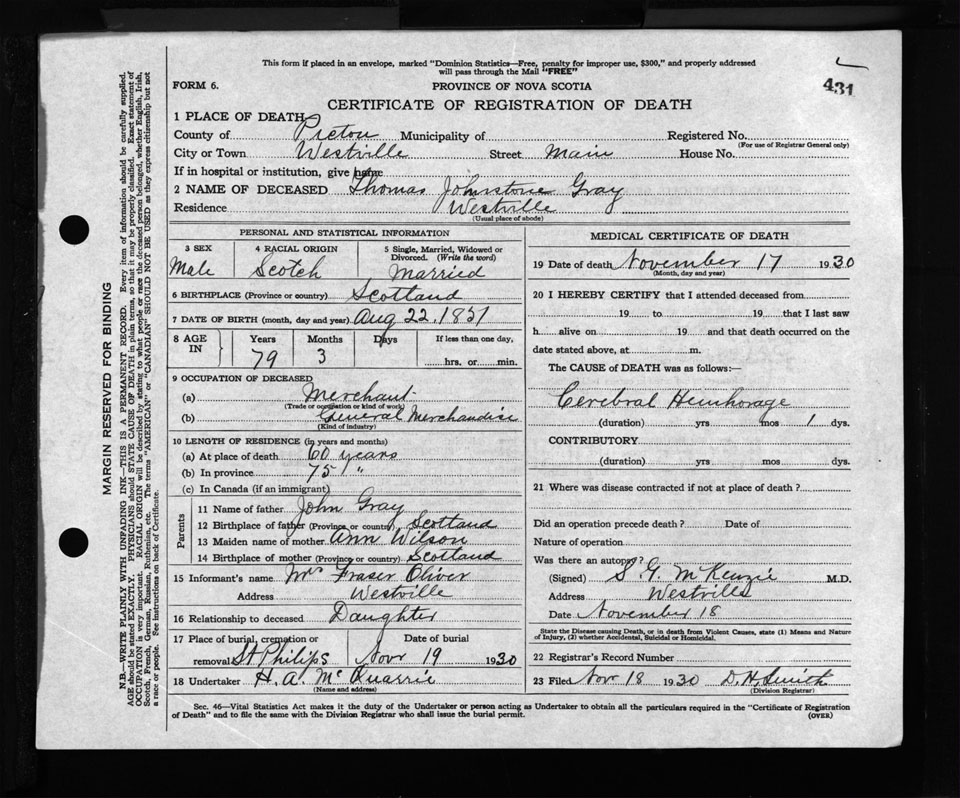 This form if placed in an envelope, marked "Dominion Statistics—Free, penalty for improper use, $300," and properly addressed
will pass through the Mail "FREE"
431
FORM 6.
PROVINCE OF NOVA SCOTIA
CERTIFICATE OF REGISTRATION OF DEATH
1 PLACE OF DEATH
County of Pictou Municipality of Registered No.
(For use of Registrar General only)
City or Town Westville Street Main House No.
If in hospital or institution, give name
2 NAME OF DECEASED Thomas Johnstone Gray
Residence Westville
(Usual place of abode)
PERSONAL AND STATISTICAL INFORMATION
3 SEX 4 RACIAL ORIGIN 5 Single, Married, Widowed or
Divorced. (Write the word)
Male Scotch Married
6 BIRTHPLACE (Province or country) Scotland
7 DATE OF BIRTH (month, day and year) Aug 22, 1851
8 AGE IN Years Months Days If less than one day,
79 3 hrs. or min.
9 OCCUPATION OF DECEASED
(a) Merchant
(Trade or occupation or kind of work)
(b) General Merchandise
(Kind of industry)
10 LENGTH OF RESIDENCE (in years and months)
(a) At place of death 60 years
(b) In province 75 "
(c) In Canada (if an immigrant)
Parents
11 Name of father John Gray
12 Birthplace of father (Province or country) Scotland
13 Maiden name of mother Ann Wilson
14 Birthplace of mother (Province or country) Scotland
15 Informant's name Mrs Fraser Oliver
Address Westville
16 Relationship to deceased Daughter
17 Place of burial, cremation or Date of burial
removal St Philips Nov 19 1930
18 Undertaker H. A. McQuarrie
(Name and address)
MEDICAL CERTIFICATE OF DEATH
19 Date of death November 17 1930
(Month, day and year)
20 I HEREBY CERTIFY that I attended deceased from
19 to 19 that I last saw
h alive on 19 and that death occurred on the
date stated above, at m.
The CAUSE of DEATH was as follows:
Cerebral Hemhorage
(duration) yrs mos 1 dys.
CONTRIBUTORY
(duration) yrs mos dys.
21 Where was disease contracted if not at place of death?
Did an operation precede death? Date of
Nature of operation
Was there an autopsy?
(Signed) S. G. McKenzie M.D.
Address Westville
Date November 18
State the Disease causing Death, or in death from Violent Causes, state (1) Means and Nature
of Injury, (2) whether Accidental, Suicidal or Homicidal.
22 Registrar's Record Number
23 Filed Nov 18 1930 D. H. Smith
(Division Registrar)
Sec. 46—Vital Statistics Act makes it the duty of the Undertaker or person acting as Undertaker to obtain all the particulars required in the "Certificate of Registration
of Death" and to file the same with the Division Registrar who shall issue the burial permit.
(OVER)
MARGIN RESERVED FOR BINDING
N.B.—WRITE PLAINLY WITH UNFADING INK—THIS IS A PERMANENT RECORD. Every item of information should be carefully supplied.
AGE should be stated EXACTLY. PHYSICIANS should STATE CAUSE OF DEATH in plain terms, so that it may be properly classified. Exact statement of
OCCUPATION is very important. RACIAL ORIGIN will be described by stating to what people or race the deceased person belonged, whether English, Irish,
Scotch, French, German, Russian, Ruthenian, etc. The terms "AMERICAN" or "CANADIAN" SHOULD NOT BE USED as they express citizenship but not
a race or people. See instructions on back of Certificate.